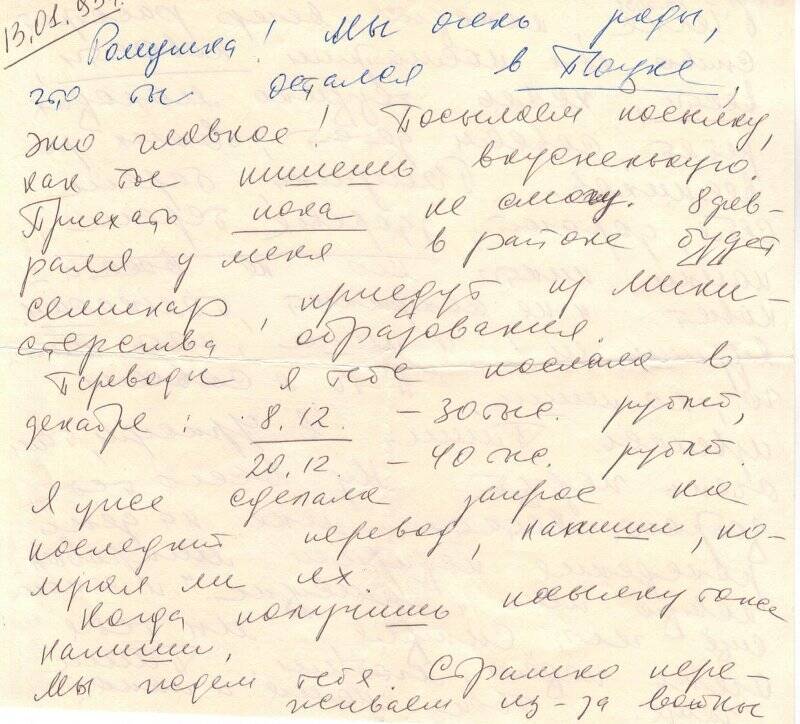 13.01.95г.
Ромушка! Мы очень рады,
что ты остался в Поцке,
это главное! Посылаем посылку,
как ты пишешь вкусненькую.
Приехать пока не смогу. 8 фев-
раля у меня в районе будет
семинар, приедут из мини-
стерства образования.
Переводы я тебе послала в
декабре: 8.12. – 30 тыс. рублей,
20.12. – 40 тыс. рублей.
Я уже сделала запрос на
последний перевод, напиши, по-
лучал ли их.
Когда получишь посылку тоже
напиши,
Мы ждем тебя. Страшно пере-
живаем из-за войны